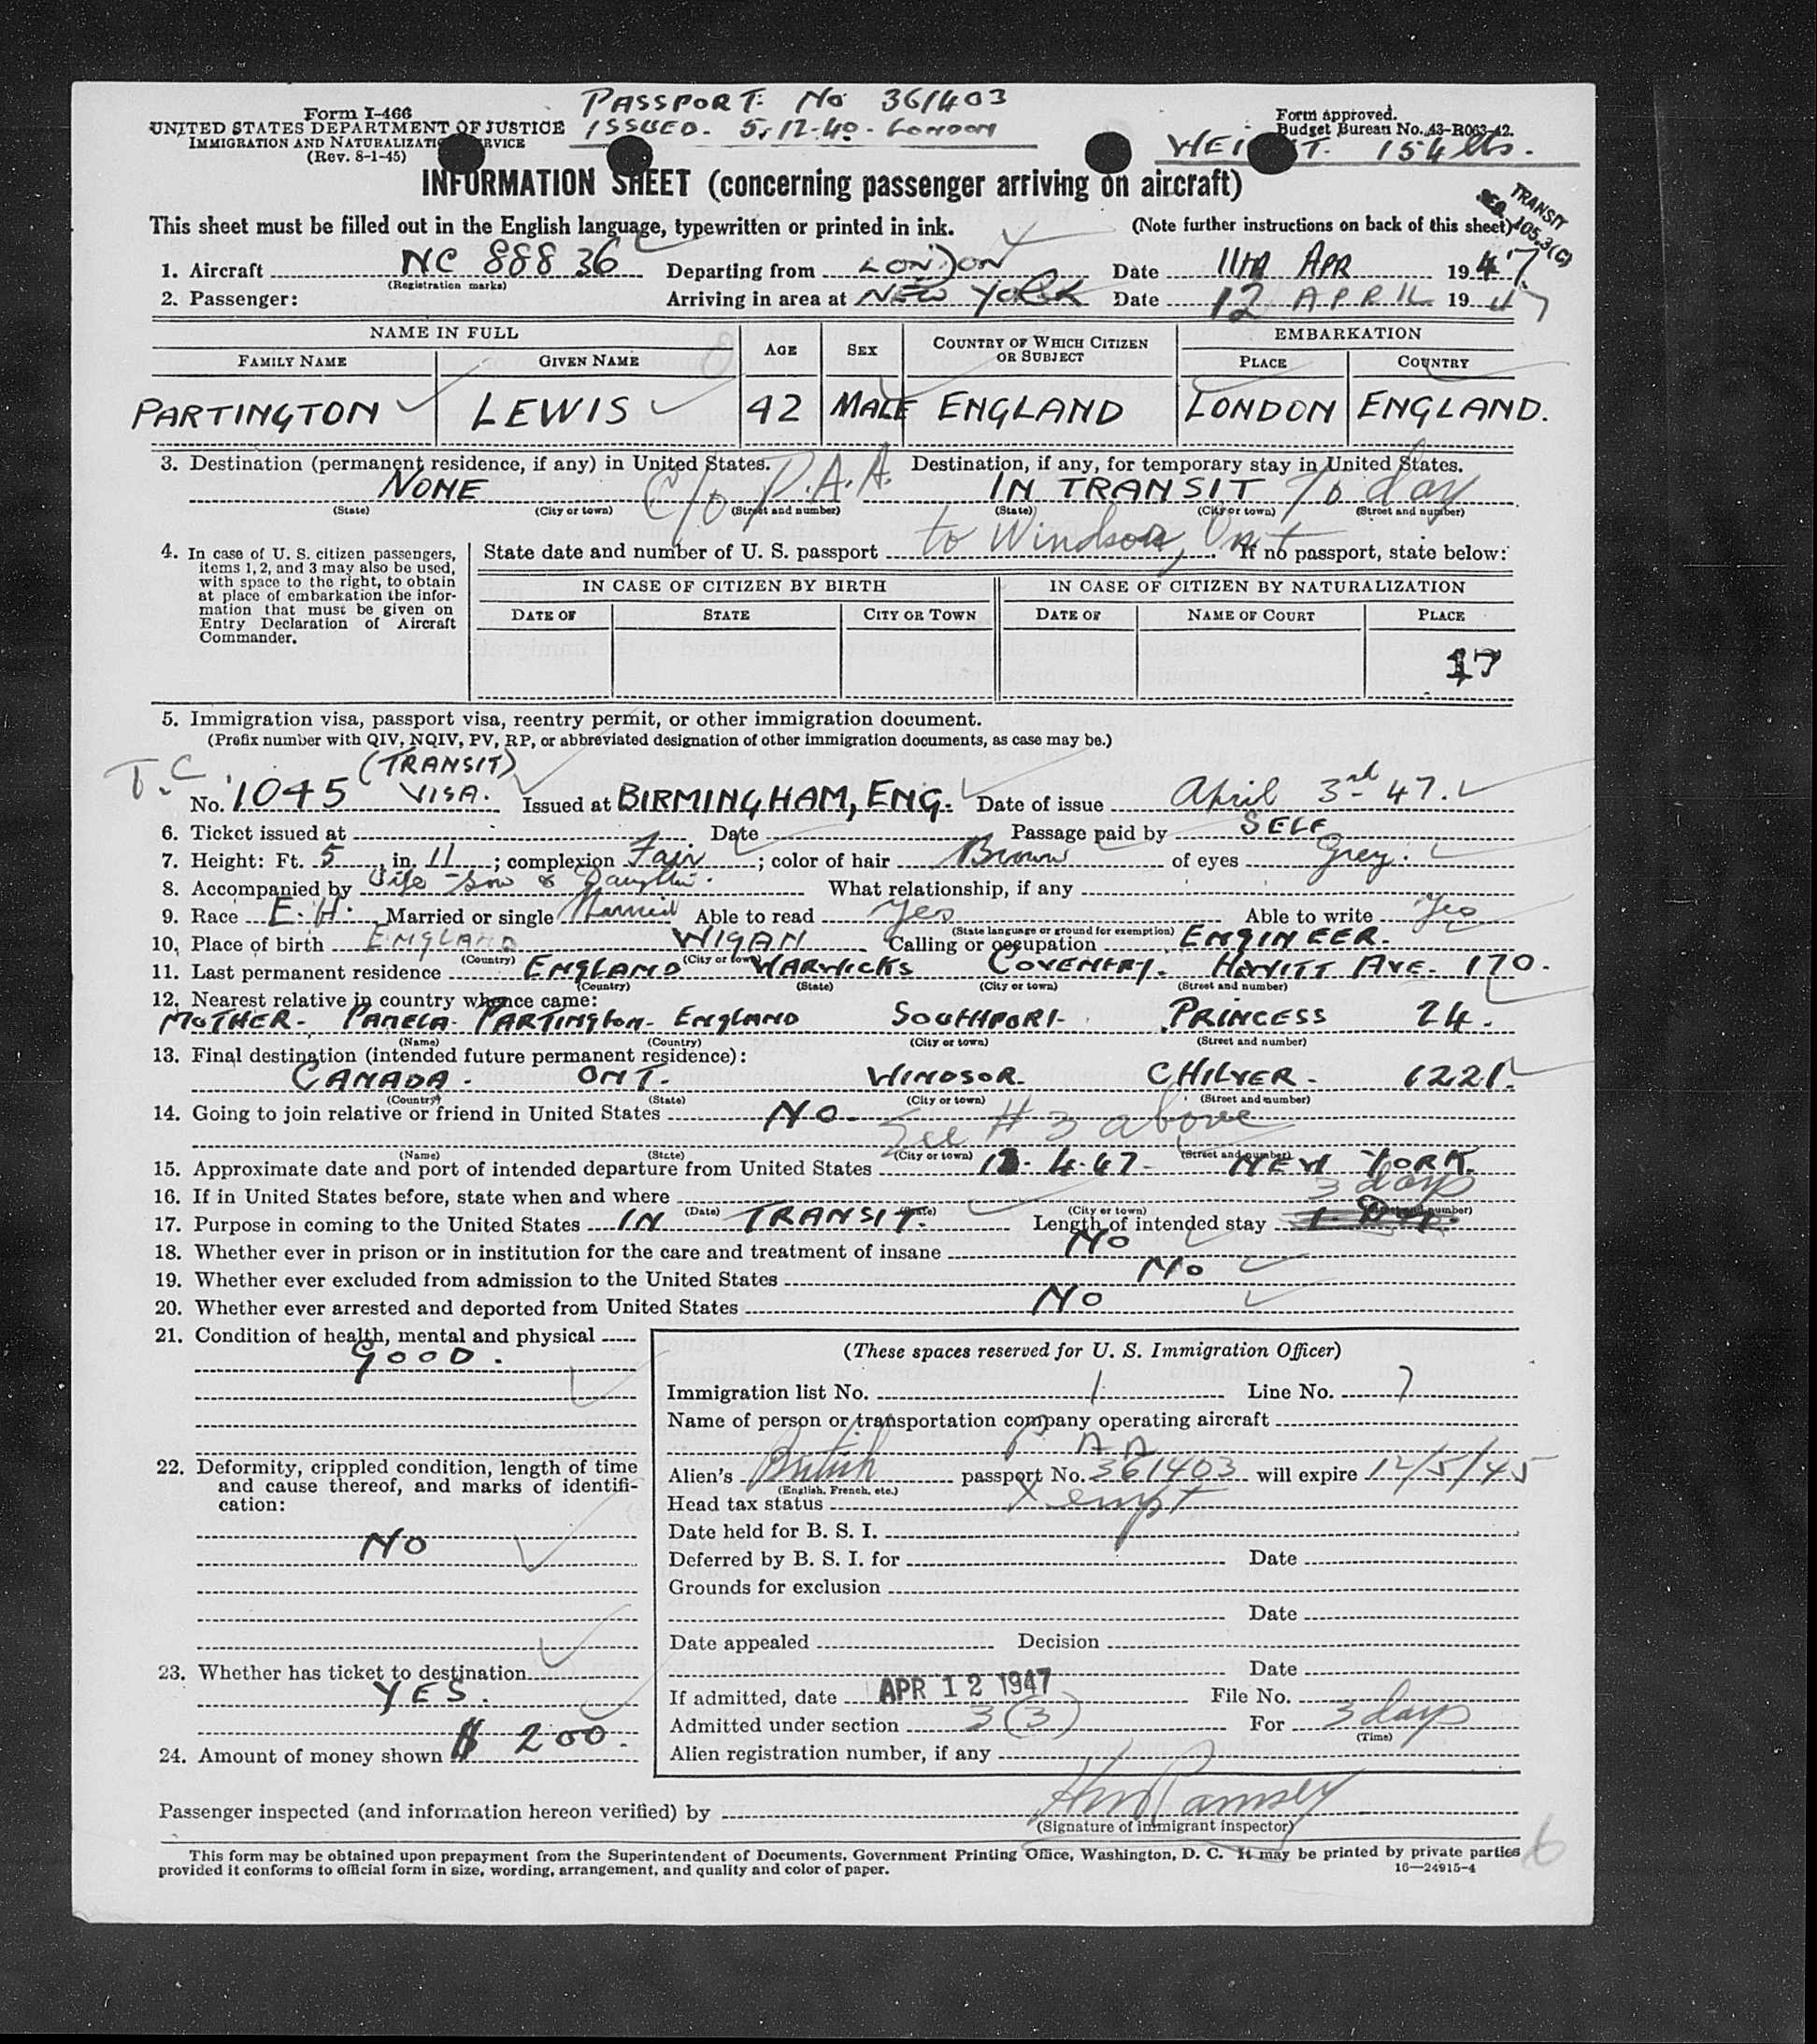 PASSPORT: No 361403
Form I-466
UNITED STATES DEPARTMENT OF JUSTICE
ISSUED. 5.12.40. LONDON
Form approved.
Budget Bureau No. 43-R063-42.
IMMIGRATION AND NATURALIZATION SERVICE
(Rev. 8-1-45)
WEIGHT. 154 lbs.
INFORMATION SHEET (concerning passenger arriving on aircraft)
TRANSIT
SEQ. 105.3(C)
This sheet must be filled out in the English language, typewritten or printed in ink. (Note further instructions on back of this sheet)
1. Aircraft NC 88836 Departing from LONDON Date 11th APR 1947
(Registration marks)
2. Passenger: Arriving in area at NEW YORK Date 12 APRIL 1947
NAME IN FULL AGE SEX COUNTRY OF WHICH CITIZEN OR SUBJECT EMBARKATION
FAMILY NAME GIVEN NAME PLACE COUNTRY
PARTINGTON LEWIS 42 MALE ENGLAND LONDON ENGLAND.
3. Destination (permanent residence, if any) in United States. Destination, if any, for temporary stay in United States.
NONE C/o P.A.A. IN TRANSIT To day
(State) (City or town) (Street and number) (State) (City or town) (Street and number)
to Windsor, Ont
4. In case of U. S. citizen passengers, items 1, 2, and 3 may also be used, with space to the right, to obtain at place of embarkation the information that must be given on Entry Declaration of Aircraft Commander.
State date and number of U. S. passport If no passport, state below:
IN CASE OF CITIZEN BY BIRTH IN CASE OF CITIZEN BY NATURALIZATION
DATE OF STATE CITY OR TOWN DATE OF NAME OF COURT PLACE
17
5. Immigration visa, passport visa, reentry permit, or other immigration document.
(Prefix number with QIV, NQIV, PV, RP, or abbreviated designation of other immigration documents, as case may be.)
T.C (TRANSIT)
No. 1045 VISA. Issued at BIRMINGHAM, ENG. Date of issue April 3rd 47.
6. Ticket issued at Date Passage paid by SELF
7. Height: Ft. 5, in. 11; complexion Fair; color of hair Brown of eyes Grey.
8. Accompanied by Wife - Son & Daughter. What relationship, if any
9. Race E.H. Married or single Married Able to read Yes Able to write Yes
(State language or ground for exemption)
10. Place of birth ENGLAND WIGAN Calling or occupation ENGINEER.
(Country) (City or town)
11. Last permanent residence ENGLAND WARWICKS COVENTRY. HEWITT AVE. 170.
(Country) (State) (City or town) (Street and number)
12. Nearest relative in country whence came:
MOTHER. PAMELA. PARTINGTON. ENGLAND SOUTHPORT. PRINCESS 24.
(Name) (Country) (City or town) (Street and number)
13. Final destination (intended future permanent residence):
CANADA. ONT. WINDSOR. CHILVER. 1221.
(Country) (State) (City or town) (Street and number)
14. Going to join relative or friend in United States NO.
See # 3 above
(Name) (State) (City or town) (Street and number)
15. Approximate date and port of intended departure from United States 13.4.47. NEW YORK.
16. If in United States before, state when and where
(Date) (State) (City or town) (Street and number)
3 days
17. Purpose in coming to the United States IN TRANSIT. Length of intended stay
18. Whether ever in prison or in institution for the care and treatment of insane NO
19. Whether ever excluded from admission to the United States NO
20. Whether ever arrested and deported from United States NO
21. Condition of health, mental and physical
GOOD.
22. Deformity, crippled condition, length of time and cause thereof, and marks of identification:
NO
23. Whether has ticket to destination
YES.
24. Amount of money shown $ 200.
(These spaces reserved for U. S. Immigration Officer)
Immigration list No. 1 Line No. 7
Name of person or transportation company operating aircraft
P A A
Alien's British passport No. 361403 will expire 12/5/45
(English, French, etc.)
Head tax status Xempt
Date held for B. S. I.
Deferred by B. S. I. for Date
Grounds for exclusion
Date
Date appealed Decision
Date
If admitted, date APR 12 1947 File No.
Admitted under section 3(3) For 3 days
(Time)
Alien registration number, if any
Passenger inspected (and information hereon verified) by Ramsey
(Signature of immigrant inspector)
This form may be obtained upon prepayment from the Superintendent of Documents, Government Printing Office, Washington, D. C. It may be printed by private parties
provided it conforms to official form in size, wording, arrangement, and quality and color of paper. 16—24915-4
6